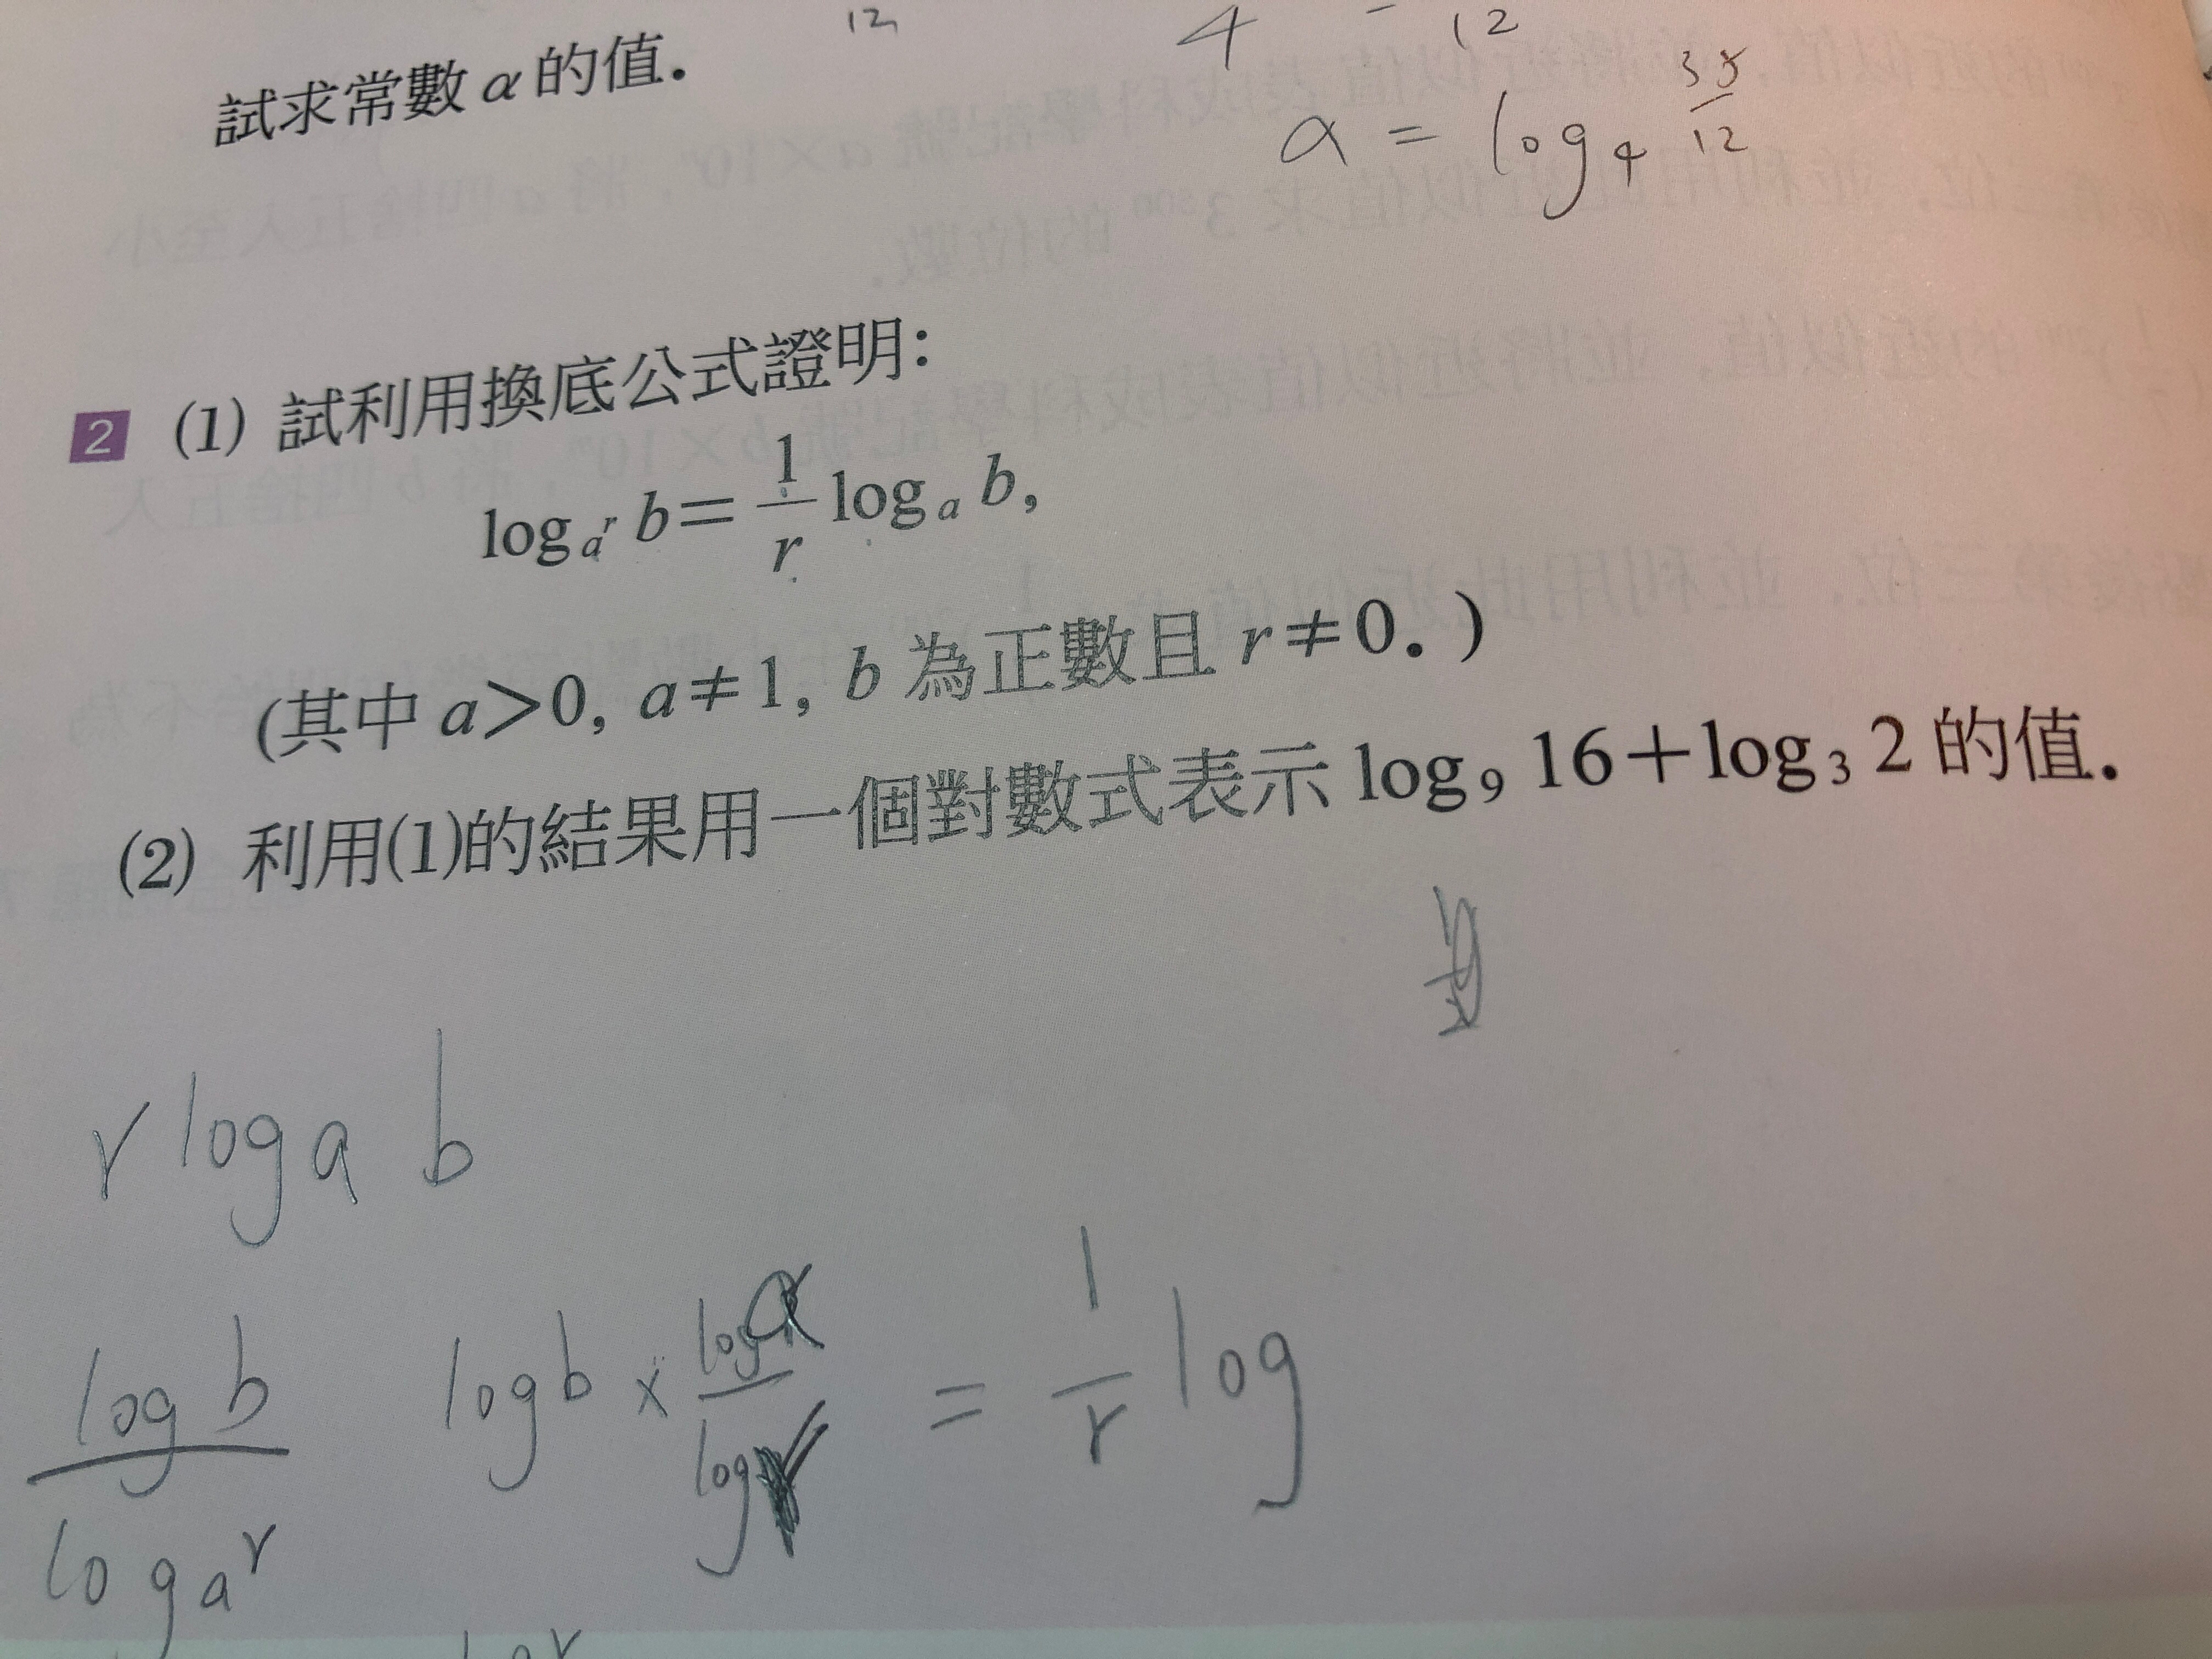 12
4 - 12
試求常數 α 的值.
α = log₄ 35/12
2 (1) 試利用換底公式證明:
log_{a^r} b = 1/r log_a b,
(其中 a>0, a≠1, b 為正數且 r≠0. )
(2) 利用(1)的結果用一個對數式表示 log₉ 16+log₃ 2 的值.
r log a b
log b / log a^r
log b × log a / log r = 1/r log